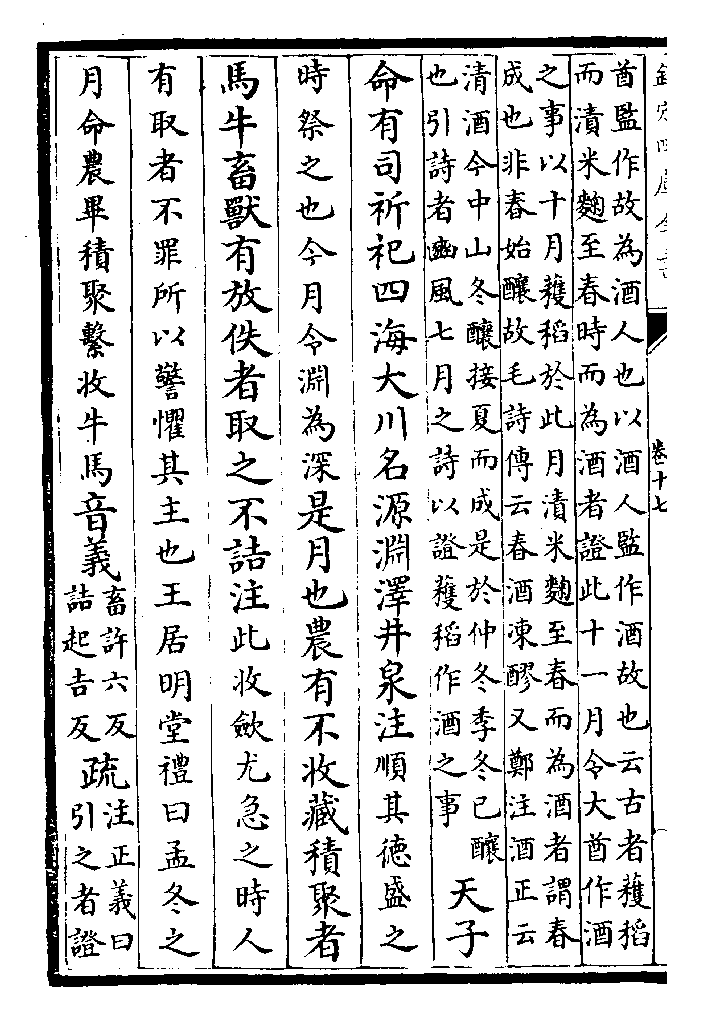 欽定四庫全書
卷十七
酋監作故為酒人也以酒人監作酒故也云古者穫稻
而漬米麴至春時而為酒者證此十一月令大酋作酒
之事以十月穫稻於此月漬米麴至春而為酒者謂春
成也非春始釀故毛詩傳云春酒凍醪又鄭注酒正云
清酒今中山冬釀接夏而成是於仲冬季冬已釀
也引詩者豳風七月之詩以證穫稻作酒之事
天子
命有司祈祀四海大川名源淵澤井泉注順其德盛之
時祭之也今月令淵為深是月也農有不收藏積聚者
馬牛畜獸有放佚者取之不詰注此收斂尤急之時人
有取者不罪所以警懼其主也王居明堂禮曰孟冬之
月命農畢積聚繫收牛馬音義
畜許六反
詰起吉反
疏
注正義曰
引之者證